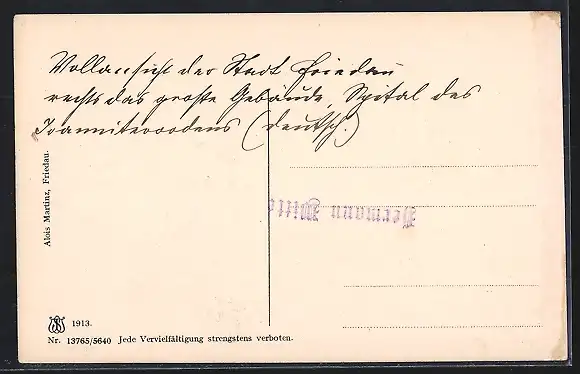 Vollansicht der Stadt Friedau
rechts das große Gebäude, Spital des
Joanniterordens (deutsch.)
Alois Martinz, Friedau.
Hermann Witte
1913.
Nr. 13765/5640 Jede Vervielfältigung strengstens verboten.